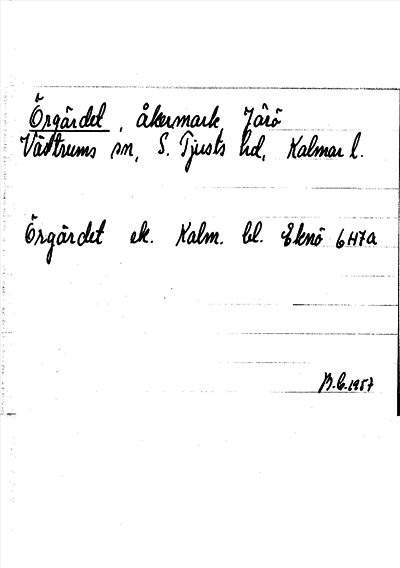 Örgärdet, åkermark, Järö
Västrums sn, S. Tjusts hd, Kalmar l.
Örgärdet ek. Kalm. bl. Eknö 6H7a
B.G. 1957